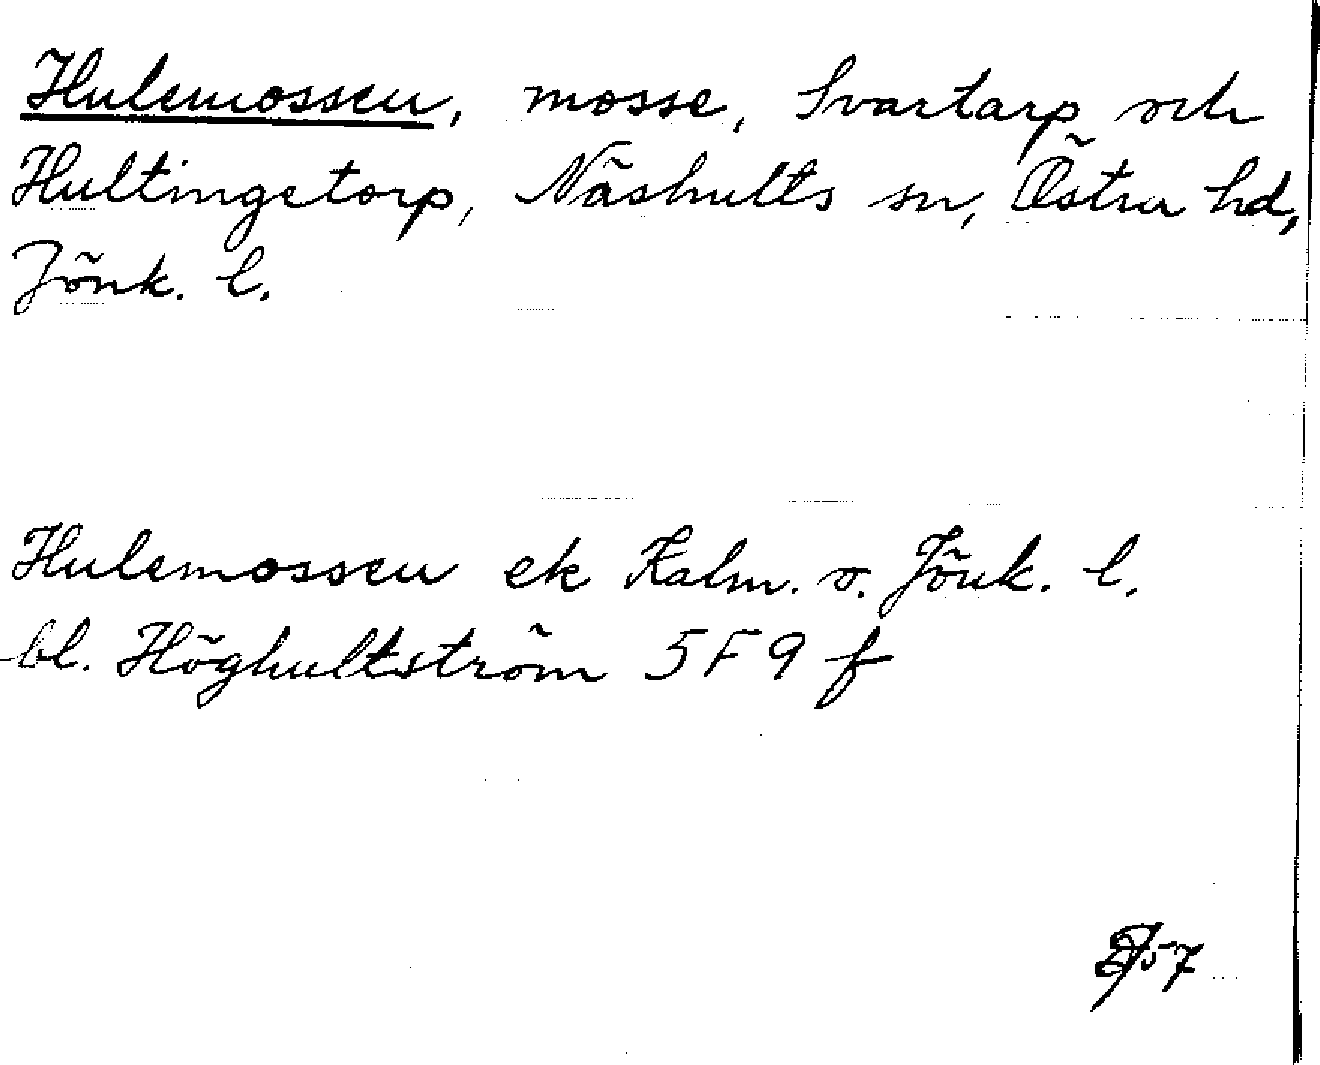 Hulemossen, mosse, Svartarp och
Hultingetorp, Näshults sn, Östra hd,
Jönk. l.
Hulemossen ek Kalm. o. Jönk. l.
bl. Höghultström 5F 9 f
57